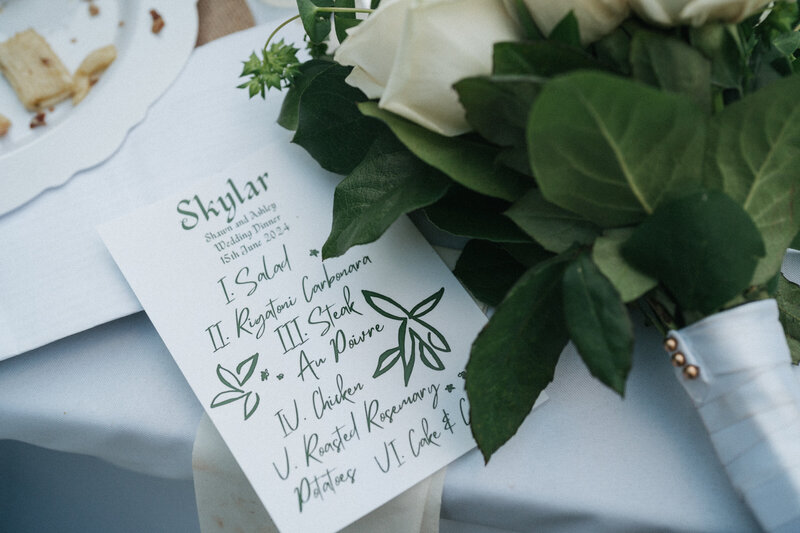 Skylar
Shawn and Ashley
Wedding Dinner
15th June 2024
I. Salad
II. Rigatoni Carbonara
III. Steak
Au Poivre
IV. Chicken
V. Roasted Rosemary
Potatoes VI. Cake &